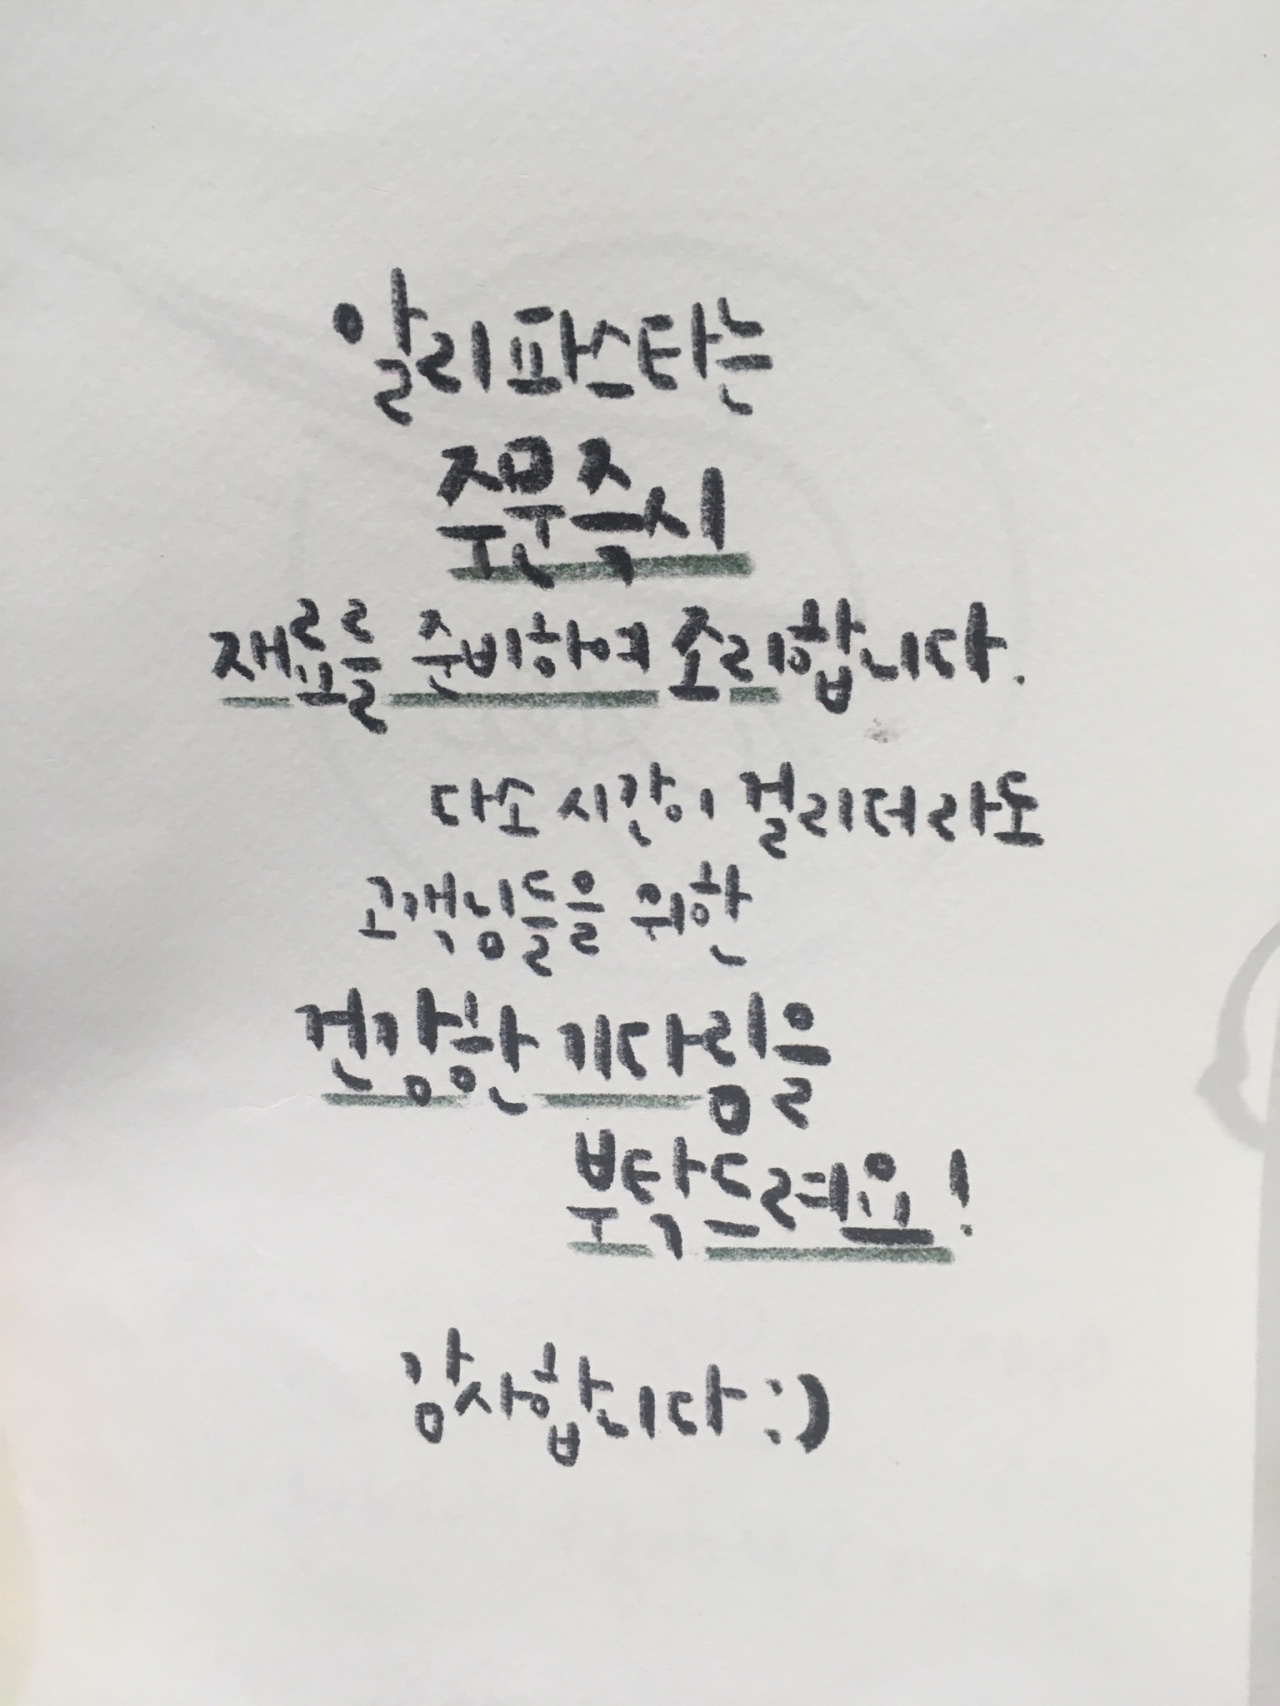 알리파스타는
주문즉시
재료를 준비하여 조리합니다.
다소 시간이 걸리더라도
고객님들을 위한
건강한 기다림을
부탁드려요!
감사합니다 :)